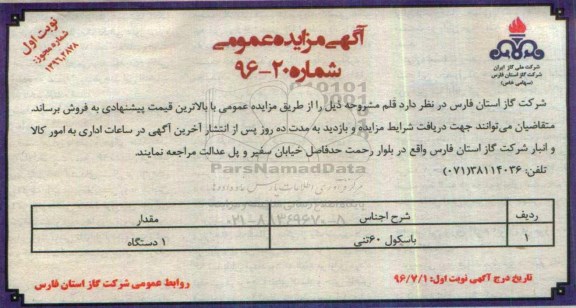 نوبت اول
شماره مجوز:
۱۳۹۶،۲۸۷۸
آگهی مزایده عمومی
شماره ۲۰-۹۶
شرکت ملی گاز ایران
شرکت گاز استان فارس
(سهامی خاص)
شرکت گاز استان فارس در نظر دارد قلم مشروحه ذیل را از طریق مزایده عمومی با بالاترین قیمت پیشنهادی به فروش برساند.
متقاضیان می‌توانند جهت دریافت شرایط مزایده و بازدید به مدت ده روز پس از انتشار آخرین آگهی در ساعات اداری به امور کالا
و انبار شرکت گاز استان فارس واقع در بلوار رحمت حدفاصل خیابان سفیر و پل عدالت مراجعه نمایند.
تلفن: ۳۸۱۱۴۰۳۶(۰۷۱)
ParsNamadData
۰۲۱-۸۸۳۴۹۶۷۰-۸
ردیف شرح اجناس مقدار
۱ باسکول ۶۰تنی ۱ دستگاه
تاریخ درج آگهی نوبت اول: ۹۶/۷/۱
روابط عمومی شرکت گاز استان فارس